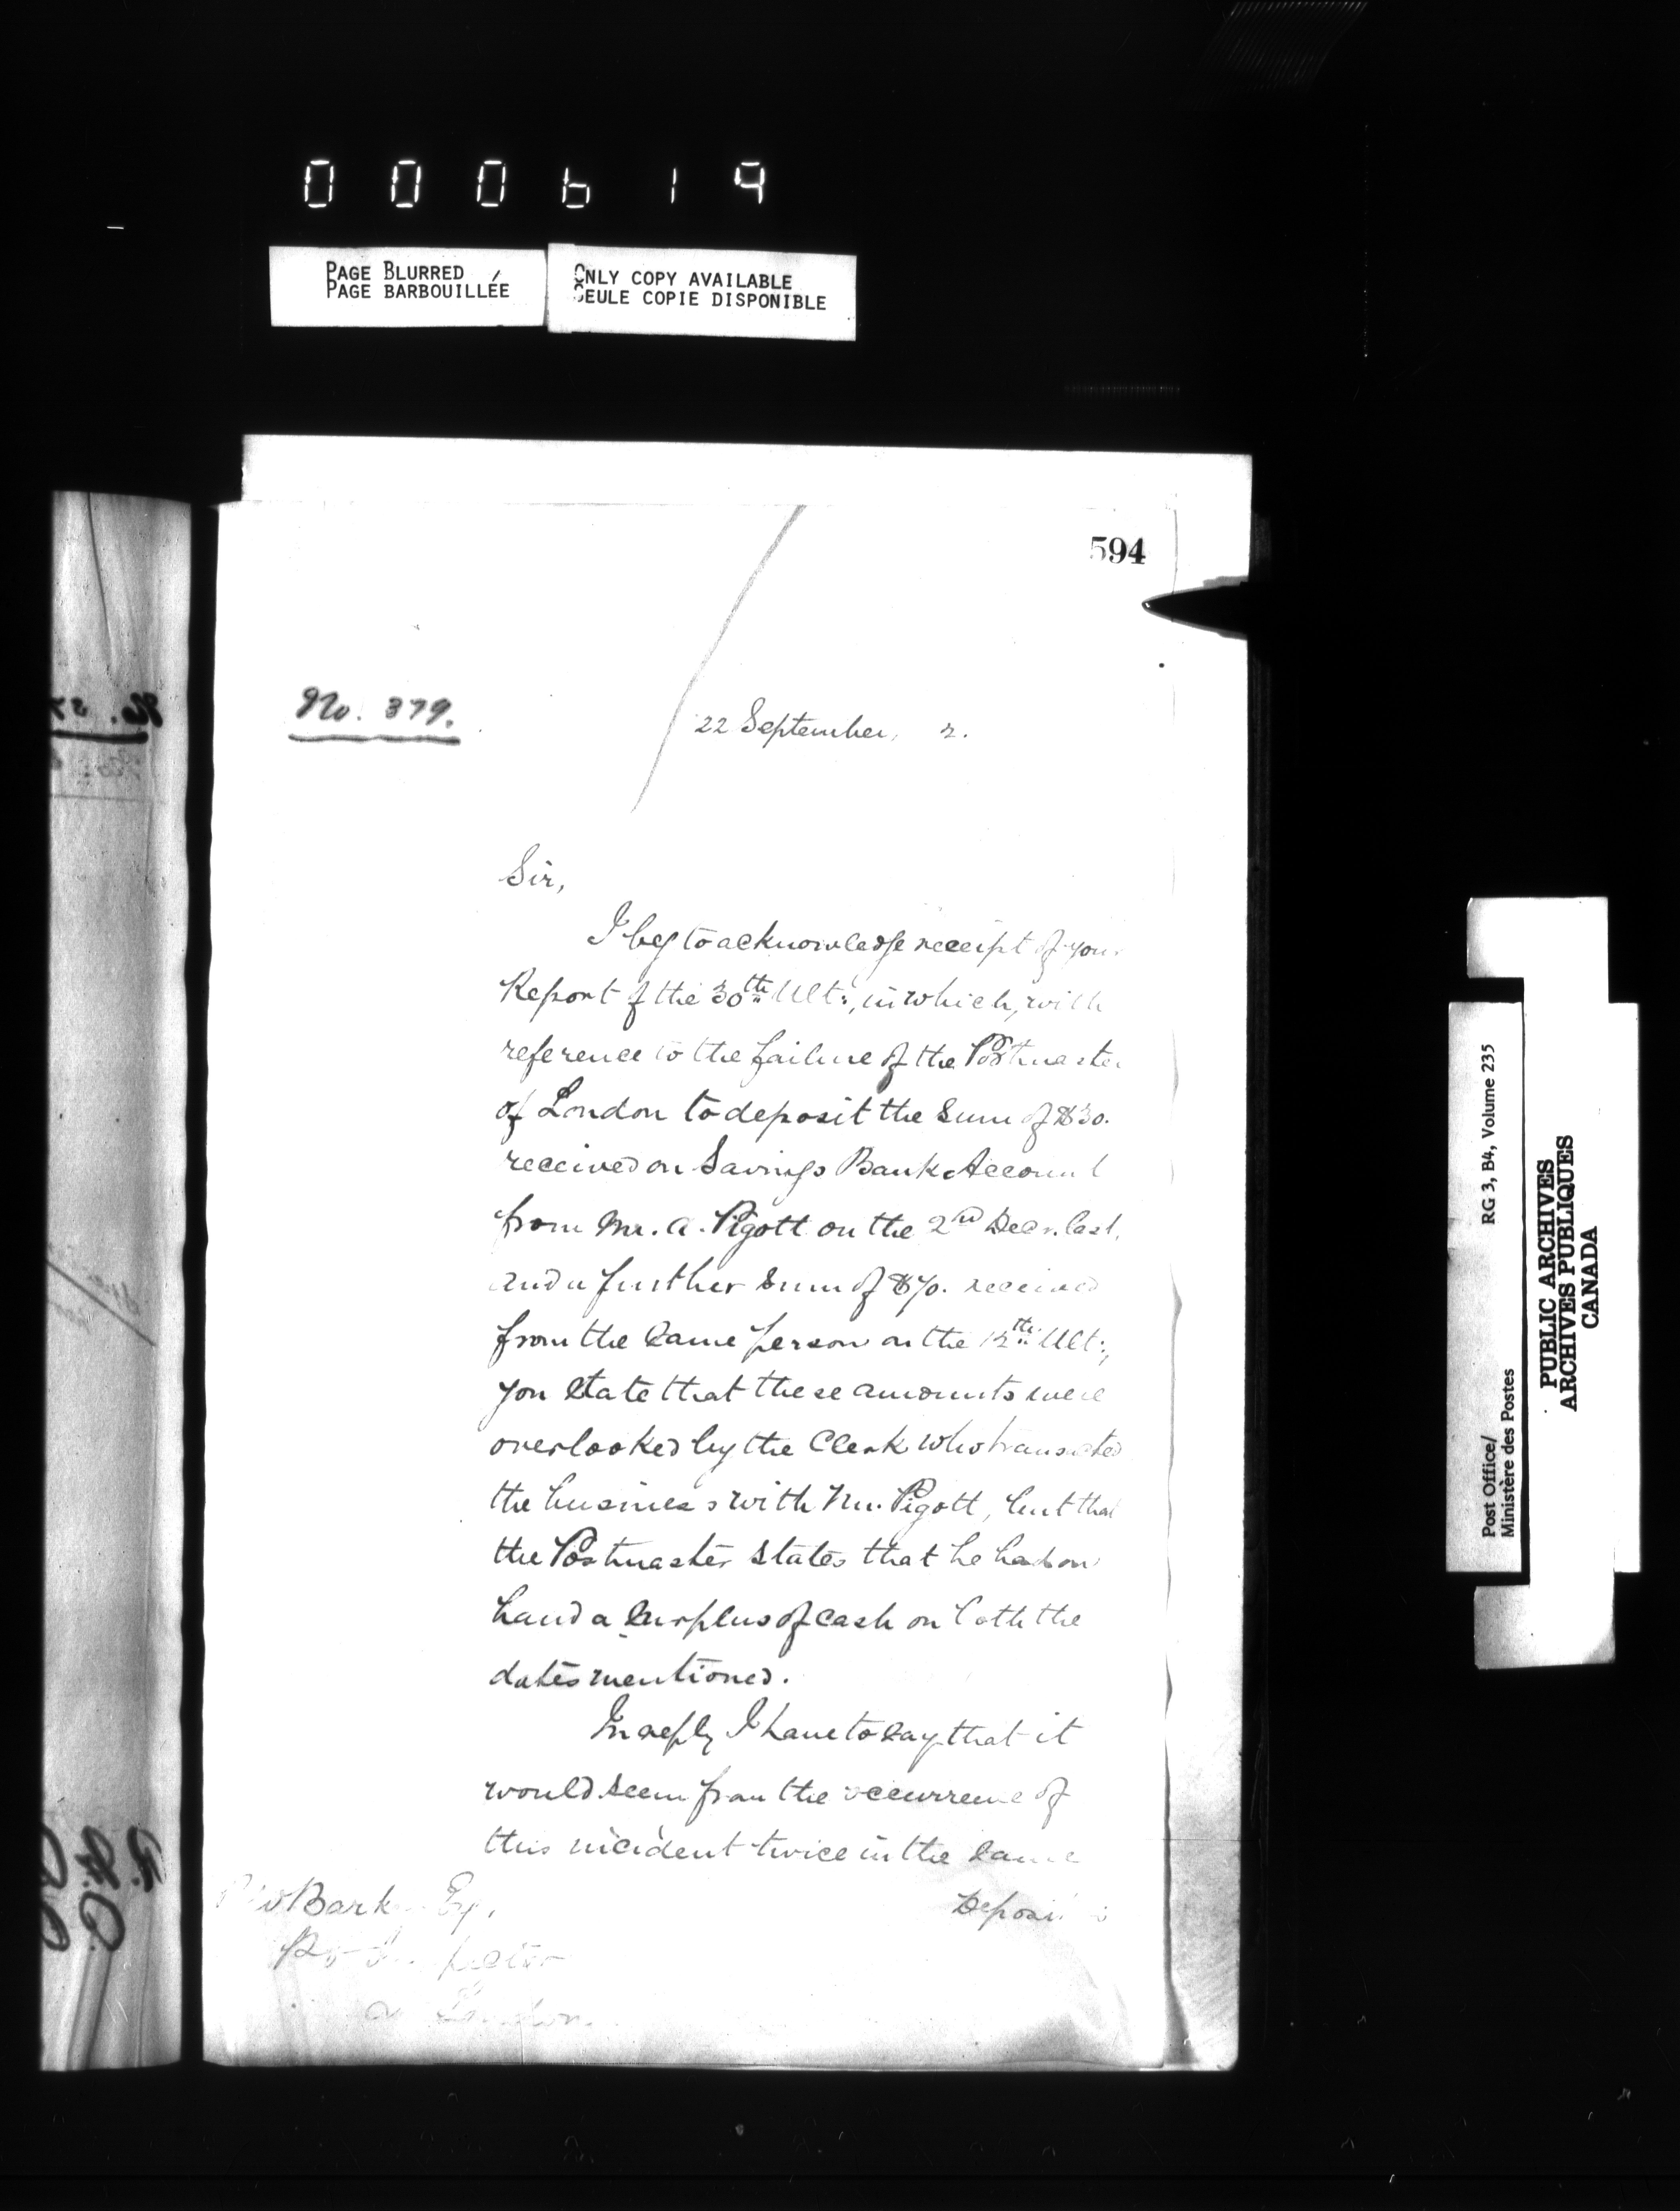 000619
PAGE BLURRED
PAGE BARBOUILLÉE
ONLY COPY AVAILABLE
SEULE COPIE DISPONIBLE
594
No. 379.
22 September, 2.
Sir,
I beg to acknowledge receipt of your
Report of the 30th Ult:, in which, with
reference to the failure of the Postmaster
of London to deposit the sum of $30.
received on Savings Bank Account
from Mr. A. Pigott on the 2nd Decr. last,
and a further sum of $70. received
from the same person on the 12th Ult:,
you state that these amounts were
overlooked by the Clerk who transacted
the business with Mr. Pigott, but that
the Postmaster states that he had on
hand a surplus of cash on both the
dates mentioned.
In reply I have to say that it
would seem from the occurrence of
this incident twice in the same
Deposi
Barker Esq,
P.O. Inspector
London.
Post Office/
Ministère des Postes
RG 3, B4, Volume 235
PUBLIC ARCHIVES
ARCHIVES PUBLIQUES
CANADA